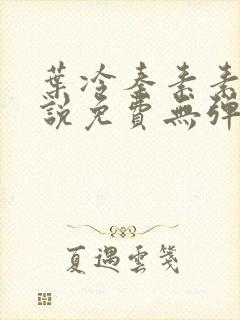 葉冷秦素素
說免費無彈
夏遇雲箋